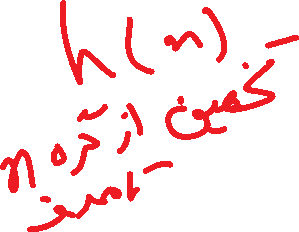 h(n) -
تخمین از گره n
تا هدف